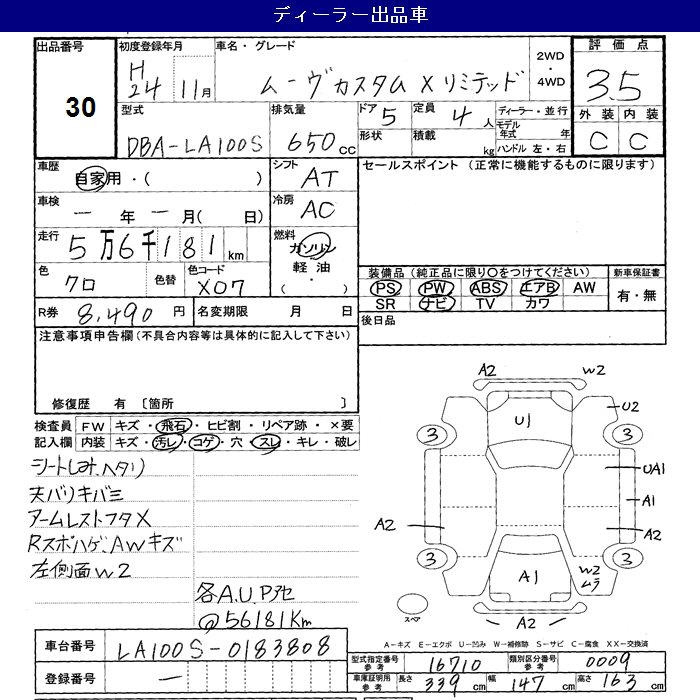 ディーラー出品車
出品番号
30
初度登録年月
H 24 11月
車名・グレード
ムーヴカスタム Xリミテッド
2WD
・
4WD
評価点
3.5
型式
DBA-LA100S
排気量
650 cc
ドア 5
定員 4人
ディーラー・並行
モデル年式 年
ハンドル 左・右
形状
積載 kg
外装 内装
C C
車歴
自家用・( )
シフト
AT
セールスポイント (正常に機能するものに限ります)
車検
一 年 一 月( 日)
冷房
AC
走行
5万6千181km
燃料
ガソリン
軽油
( ・ )
色
クロ
色替
色コード
X07
装備品 (純正品に限り○をつけてください)
新車保証書
PS PW ABS エアB AW
SR ナビ TV カワ
有・無
R券 8,490 円
名変期限 月 日
後日品
注意事項申告欄 (不具合内容等は具体的に記入して下さい)
修復歴 有 〔箇所 〕
検査員 FW キズ・飛石・ヒビ割・リペア跡・×要
記入欄 内装 キズ・汚レ・コゲ・穴・スレ・キレ・破レ
シートしみ、ヘタリ
天バリキバミ
アームレストフタX
Rスポハゲ、AWキズ
左側面W2
各A.U.Pアセ
@56181Km
A2 W2
U1
U2
3 3
UA1
A1
A2 A2
3 3
A1
W2
ムラ
スペア
A2
A-キズ E-エクボ U-凹み W-補修跡 S-サビ C-腐食 XX-交換済
車台番号 LA100S-0183808
登録番号 一
型式指定番号 参考 16710
類別区分番号 参考 0009
車庫証明用 参考 長さ 339 cm 幅 147 cm 高さ 163 cm